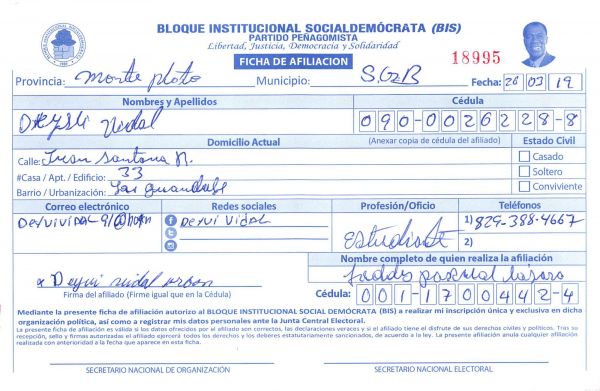 BLOQUE INSTITUCIONAL SOCIALDEMÓCRATA (BIS)
PARTIDO PEÑAGOMISTA
Libertad, Justicia, Democracia y Solidaridad
FICHA DE AFILIACION
18995
Provincia: Monte plata Municipio: S.G.B Fecha: 26 03 19
Nombres y Apellidos Cédula
Vidal 090-0026228-8
Domicilio Actual (Anexar copia de cédula del afiliado) Estado Civil
Calle: Juan Santana N. Casado
#Casa / Apt. / Edificio: 33 Soltero
Barrio / Urbanización: Conviviente
Correo electrónico Redes sociales Profesión/Oficio Teléfonos
Deyvi Vidal Estudiante 1) 829-388-4667
2)
Nombre completo de quien realiza la afiliación
x Deyvi vidal
pascual lazaro
Firma del afiliado (Firme igual que en la Cédula) Cédula: 001-1700442-4
Mediante la presente ficha de afiliación autorizo al BLOQUE INSTITUCIONAL SOCIAL DEMÓCRATA (BIS) a realizar mi inscripción única y exclusiva en dicha
organización política, así como a registrar mis datos personales ante la Junta Central Electoral.
La presente ficha de afiliación es válida si los datos ofrecidos por el afiliado son correctos, las declaraciones veraces y si el afiliado tiene el disfrute de sus derechos civiles y políticos. Tras su
recepción, sello y firmas autorizadas el afiliado ejercerá todos los derechos y los deberes estatutariamente sancionados, de acuerdo a la ley. La presente afiliación anula cualquier afiliación
realizada con anterioridad a la fecha que aparece en esta ficha.
SECRETARIO NACIONAL DE ORGANIZACIÓN SECRETARIO NACIONAL ELECTORAL